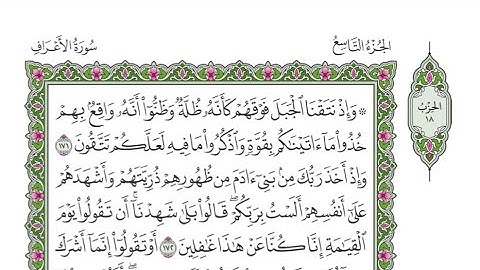 الجُزْءُ التَّاسِعُ
سُورَةُ الأَعْرَافِ
الحِزْبُ
١٨
۞ وَإِذْ نَتَقْنَا ٱلْجَبَلَ فَوْقَهُمْ كَأَنَّهُۥ ظُلَّةٌ وَظَنُّوٓا۟ أَنَّهُۥ وَاقِعٌۢ بِهِمْ
خُذُوا۟ مَآ ءَاتَيْنَٰكُم بِقُوَّةٍ وَٱذْكُرُوا۟ مَا فِيهِ لَعَلَّكُمْ تَتَّقُونَ ١٧١
وَإِذْ أَخَذَ رَبُّكَ مِنۢ بَنِىٓ ءَادَمَ مِن ظُهُورِهِمْ ذُرِّيَّتَهُمْ وَأَشْهَدَهُمْ
عَلَىٰٓ أَنفُسِهِمْ أَلَسْتُ بِرَبِّكُمْ ۖ قَالُوا۟ بَلَىٰ ۛ شَهِدْنَآ ۛ أَن تَقُولُوا۟ يَوْمَ
ٱلْقِيَٰمَةِ إِنَّا كُنَّا عَنْ هَٰذَا غَٰفِلِينَ ١٧٢ أَوْ تَقُولُوٓا۟ إِنَّمَآ أَشْرَكَ